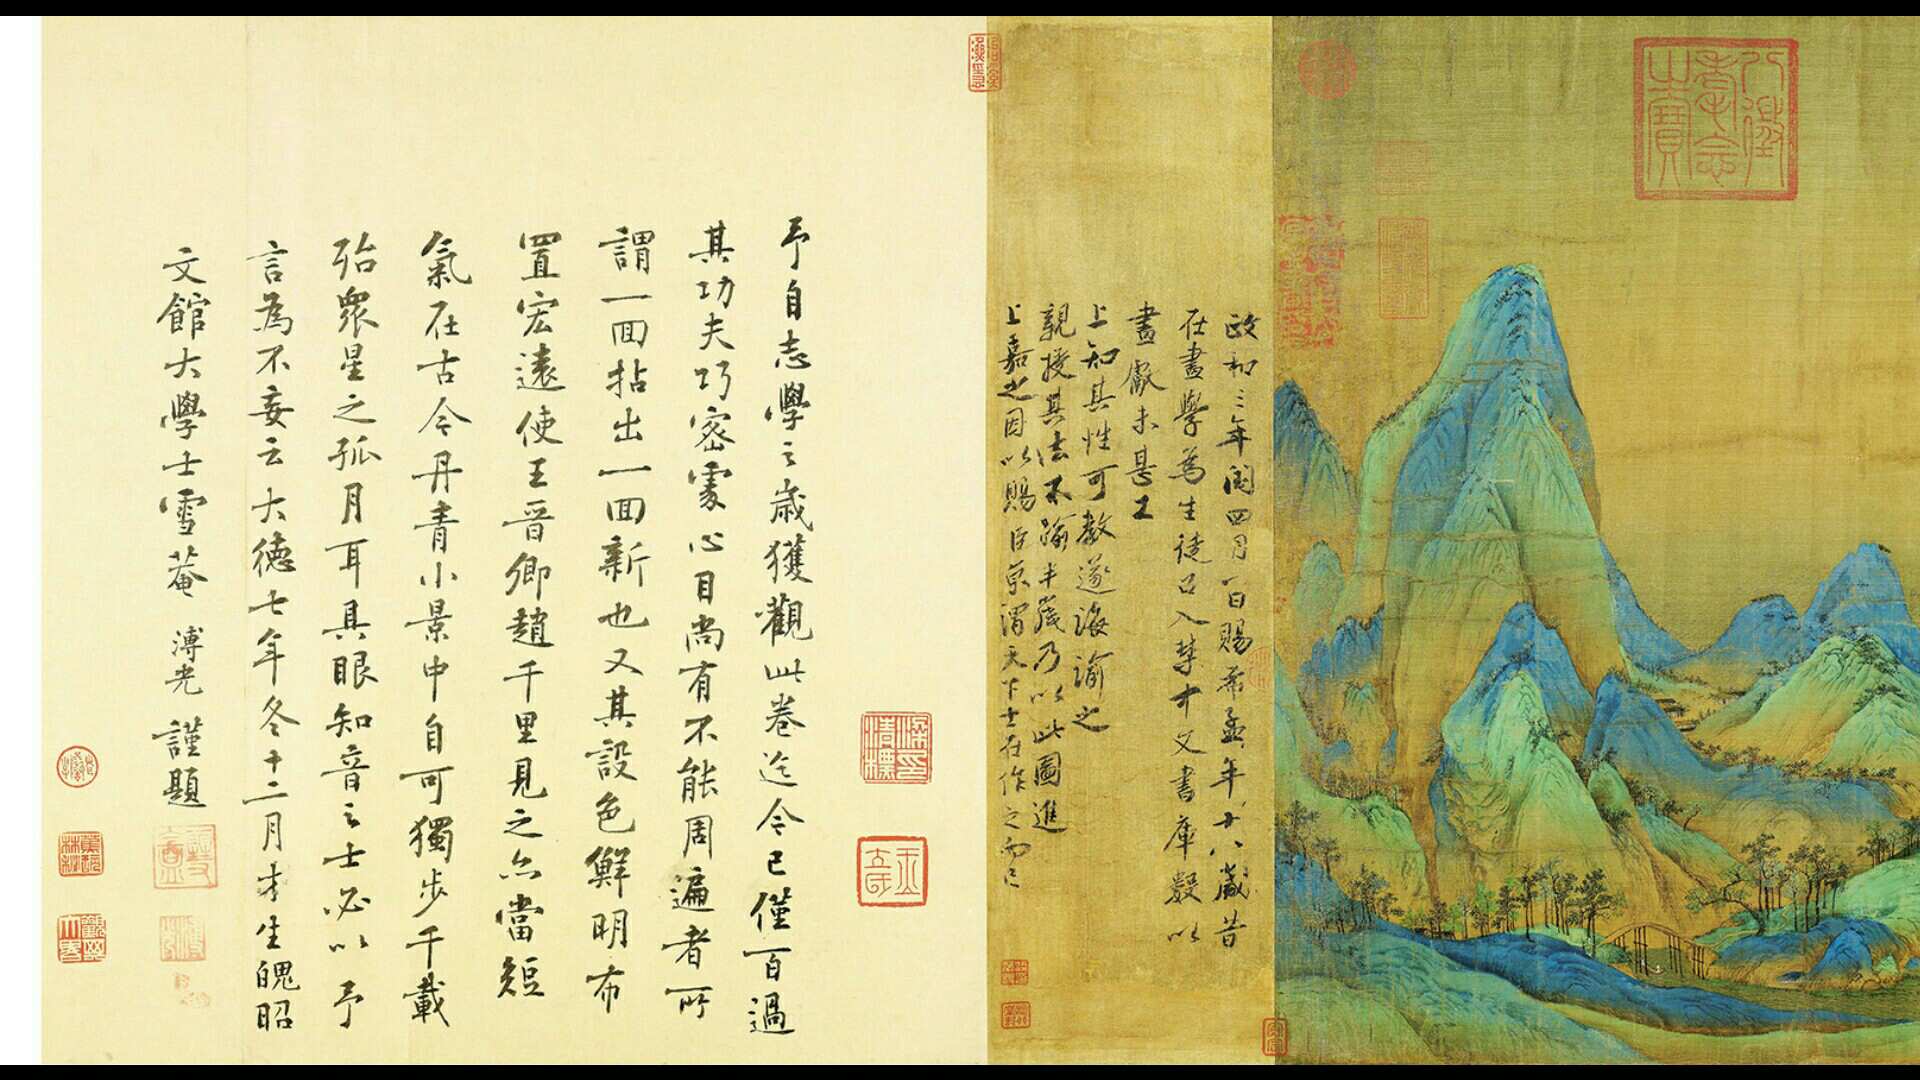 八徵耄念之寶
政和三年閏四月一日賜希孟年十八歲昔
在畫學為生徒召入禁中文書庫數以
畫獻未甚工
上知其性可教遂誨諭之
親授其法不踰半歲乃以此圖進
上嘉之因以賜臣京謂天下士在作之而已
予自志學之歲獲觀此卷迄今已僅百過
其功夫巧密處心目尚有不能周遍者所
謂一回拈出一回新也又其設色鮮明布
置宏遠使王晉卿趙千里見之亦當短
氣在古今丹青小景中自可獨步千載
殆眾星之孤月耳具眼知音之士必以予
言為不妄云大德七年冬十二月才生魄昭
文館大學士雪菴溥光謹題